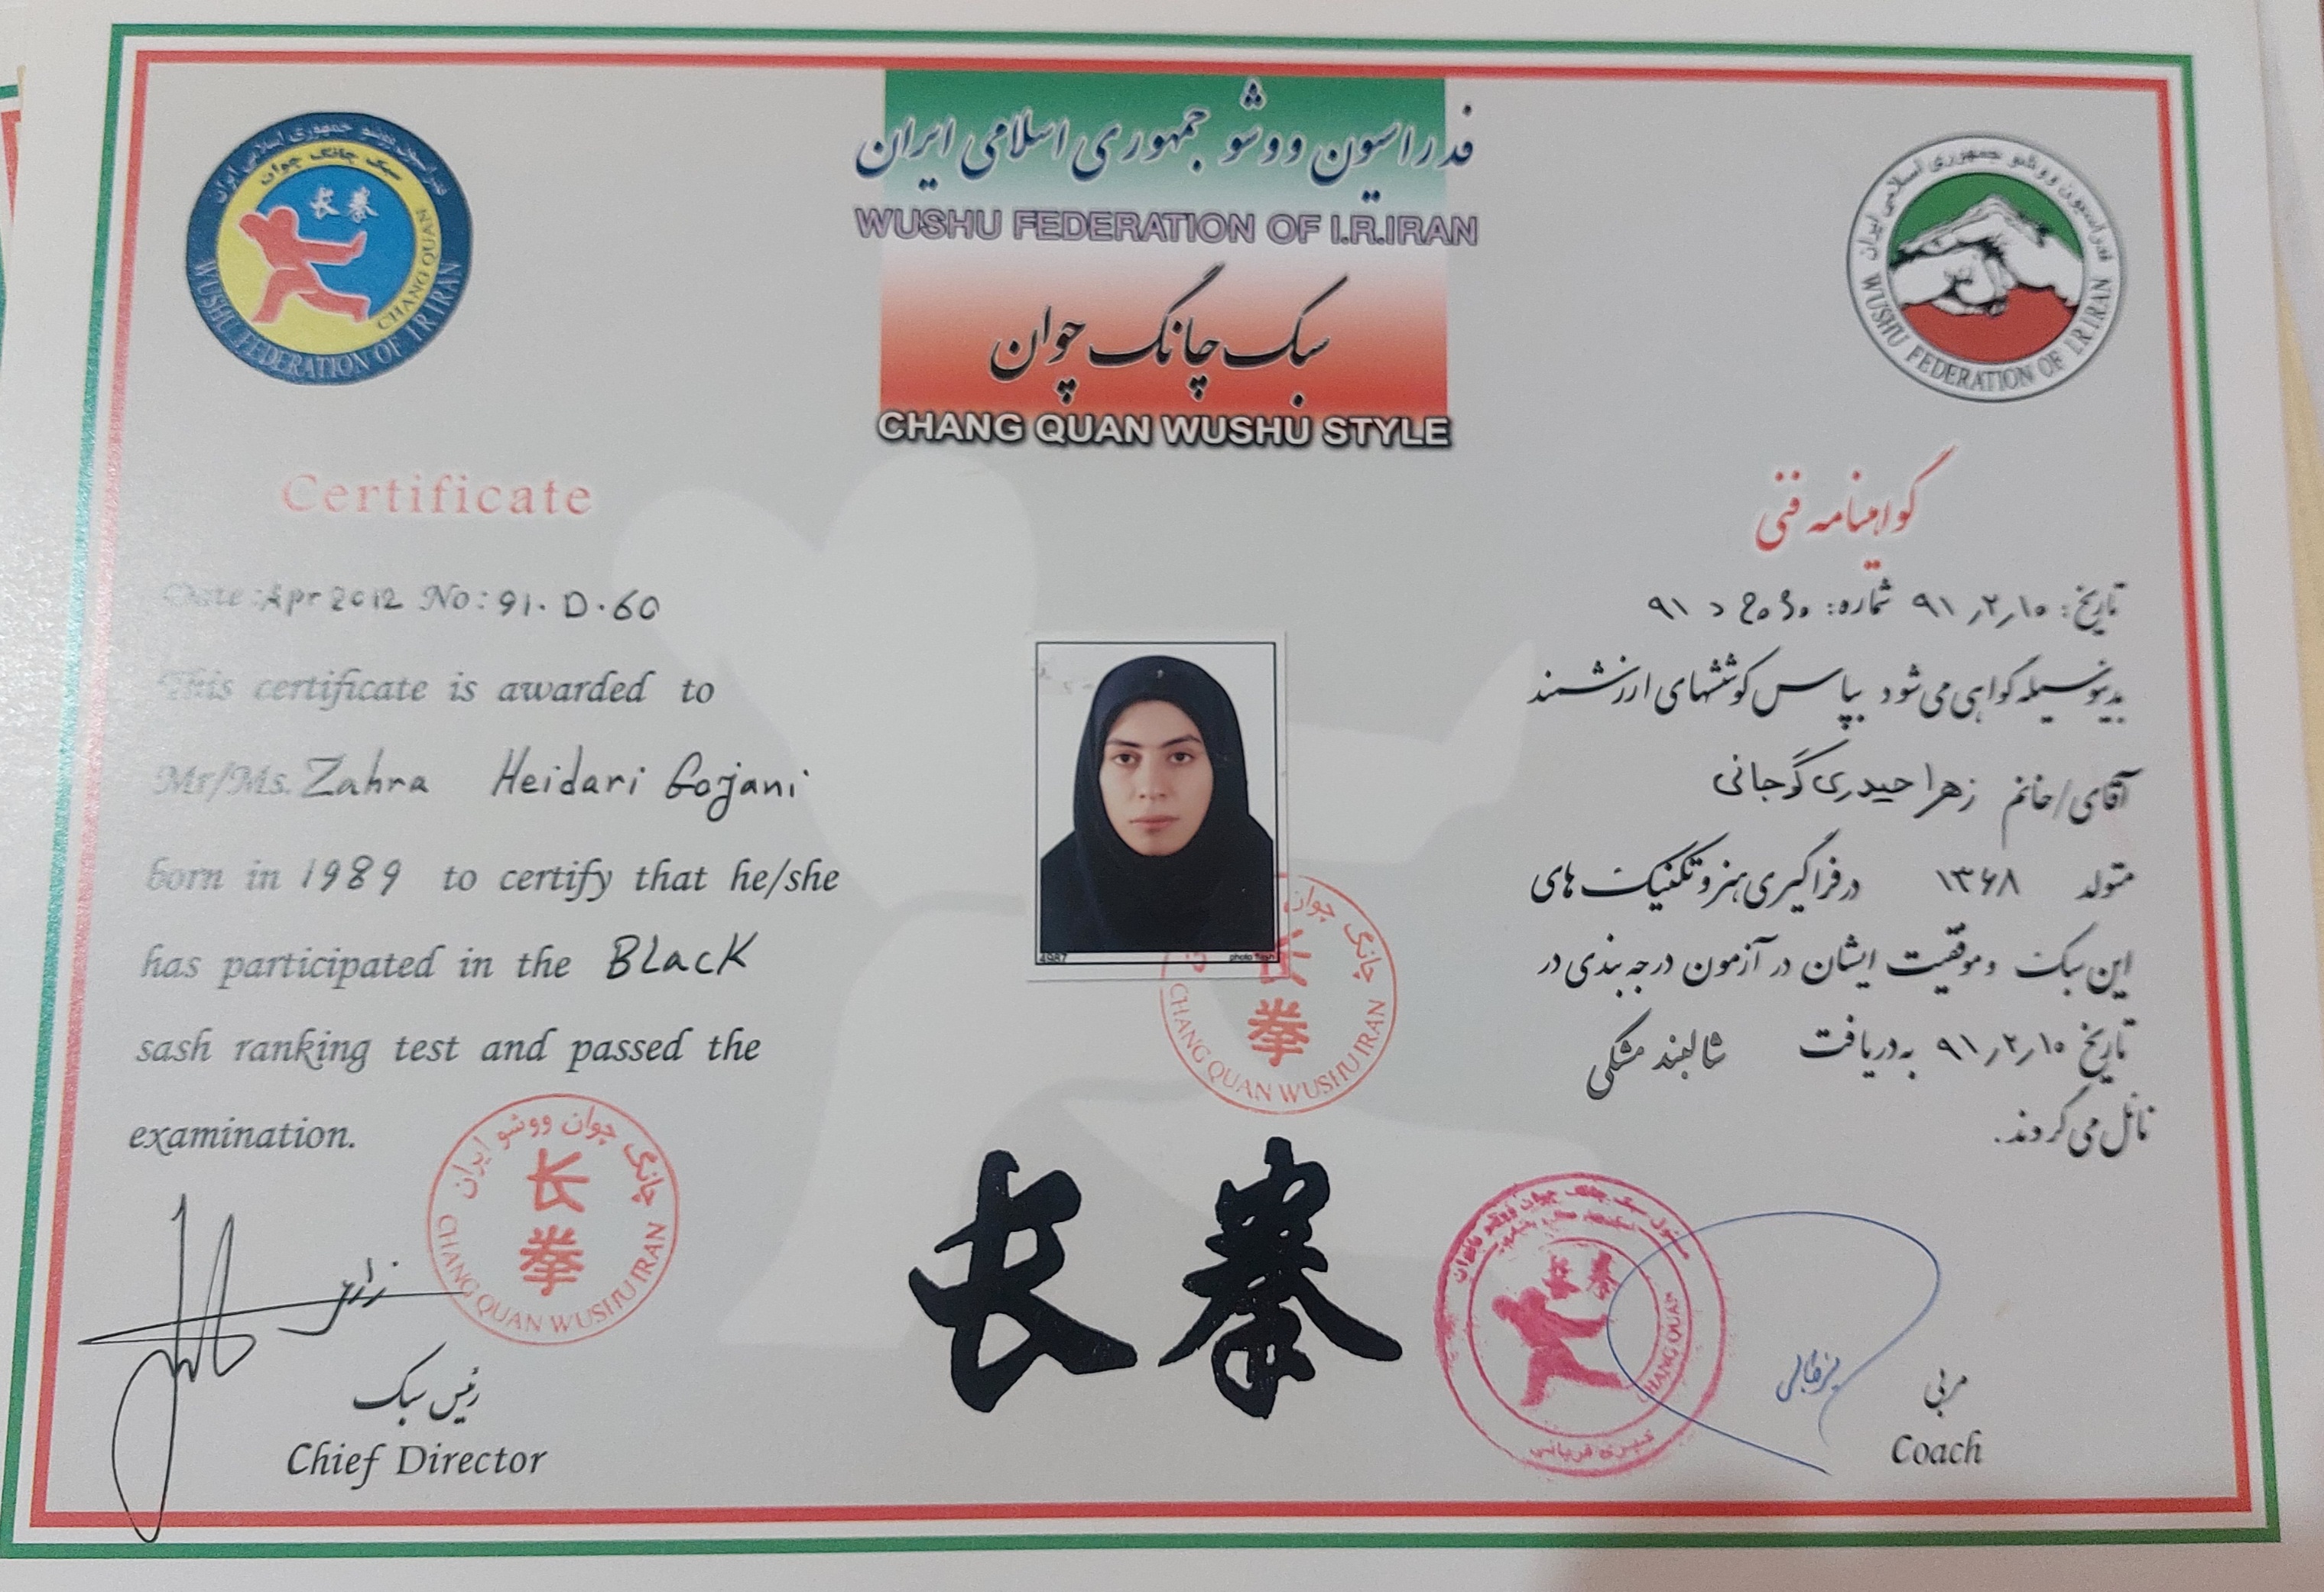 فدراسیون ووشو جمهوری اسلامی ایران
WUSHU FEDERATION OF I.R.IRAN
سبک چانگ چوان
CHANG QUAN WUSHU STYLE
فدراسیون ووشو جمهوری اسلامی ایران
سبک چانگ چوان
长拳
CHANG QUAN
WUSHU FEDERATION OF I.R.IRAN
فدراسیون ووشو جمهوری اسلامی ایران
WUSHU FEDERATION OF I.R.IRAN
Certificate
Date: Apr 2012 No: 91. D. 60
This certificate is awarded to
Mr/Ms. Zahra Heidari Gojani
born in 1989 to certify that he/she
has participated in the Black
sash ranking test and passed the
examination.
گواهینامه فنی
تاریخ: ۹۱٫۲٫۱۰ شماره: ۹۱ د
بدینوسیله گواهی می شود بپاس کوششهای ارزشمند
آقای/خانم زهرا حیدری گوجانی
متولد ۱۳۶۸ در فراگیری هنر و تکنیک های
این سبک و موفقیت ایشان در آزمون درجه بندی در
تاریخ ۹۱٫۲٫۱۰ به دریافت شالبند مشکی
نائل می گردند.
4987
photo flash
چانگ چوان
长
拳
CHANG QUAN WUSHU IRAN
چانگ چوان ووشو ایران
长
拳
CHANG QUAN WUSHU IRAN
长拳
长拳
CHANG QUAN
رئیس سبک
Chief Director
مربی
Coach